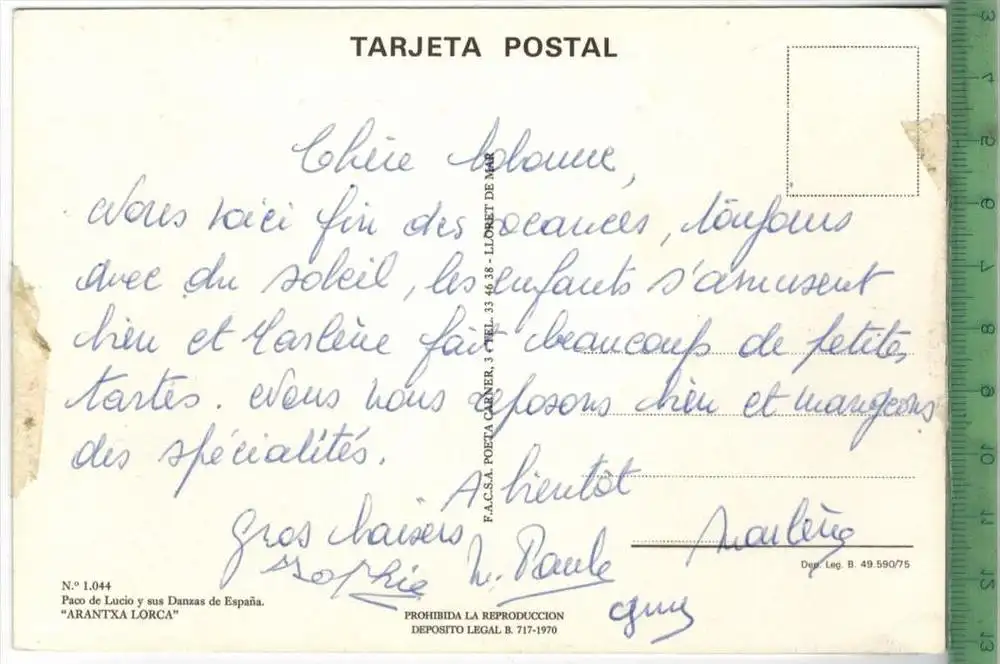 TARJETA POSTAL
Chère
Nous voici fin des vacances, toujours
avec du soleil, les enfants s'amusent
bien et Marlène fait beaucoup de petites
tartes. Nous nous reposons bien et mangeons
des spécialités.
A bientôt
Gros baisers
Sophie M. Paule Marlène
F.A.C.S.A. POETA CARNER, 3 - TEL. 33 46 38 - LLORET DE MAR
Dep. Leg. B. 49.590/75
N.º 1.044
Paco de Lucio y sus Danzas de España.
"ARANTXA LORCA"
PROHIBIDA LA REPRODUCCION
DEPOSITO LEGAL B. 717-1970